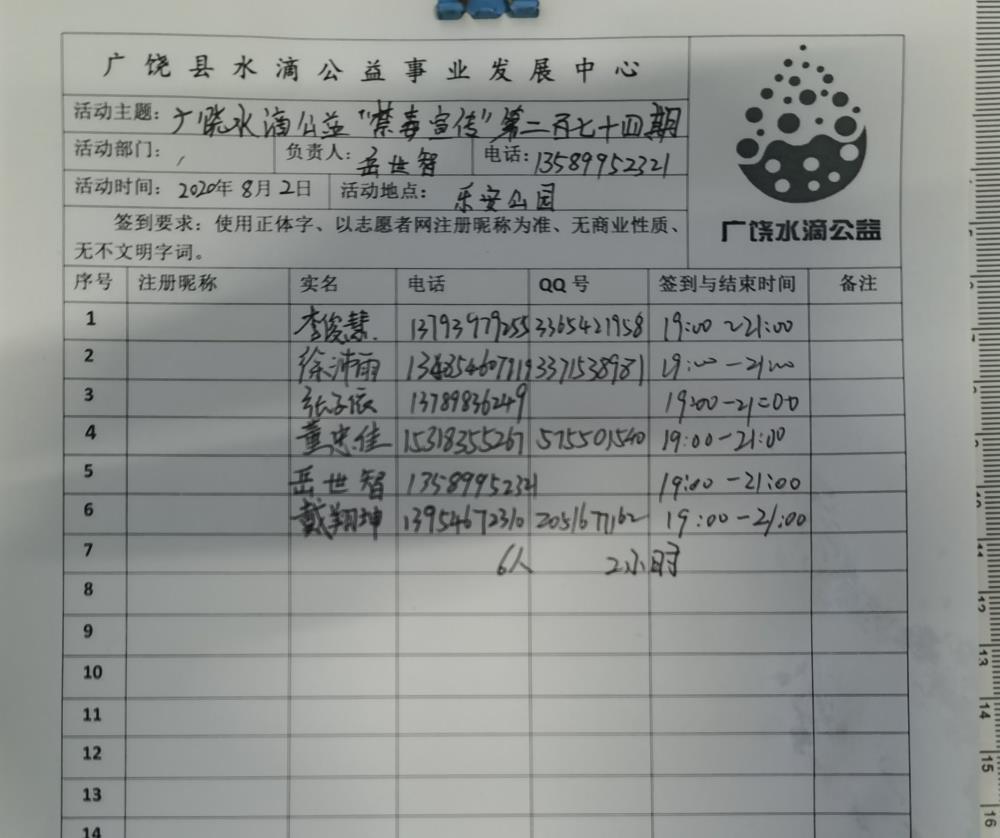 广饶县水滴公益事业发展中心
活动主题：广饶水滴公益“禁毒宣传”第二百七十四期
活动部门： / 负责人：岳世智 电话：13589952321
活动时间：2020年8月2日 活动地点：乐安公园
签到要求：使用正体字、以志愿者网注册昵称为准、无商业性质、
无不文明字词。
广饶水滴公益
序号 注册昵称 实名 电话 QQ号 签到与结束时间 备注
1 李俊慧 13793979255 3365421958 19:00~21:00
2 徐沛雨 3371538981 19:00-21:00
3 张子依 13789836249 19:00-21:00
4 董忠佳 15318355267 575501540 19:00-21:00
5 岳世智 13589952321 19:00-21:00
6 戴翔坤 13954672310 2051677162 19:00-21:00
7 6人 2小时
8
9
10
11
12
13
14
11
12
13
14
15
16